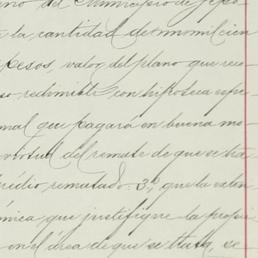 del Municipio de
la cantidad de nomilcien
pesos, valor del plano que
so redimible, con hipoteca espe
mal que pagará en buena mo
virtud del remate de que se tra
predio rematado. 3º, que la
nica que justifique la propi
en el área de que se trata, se